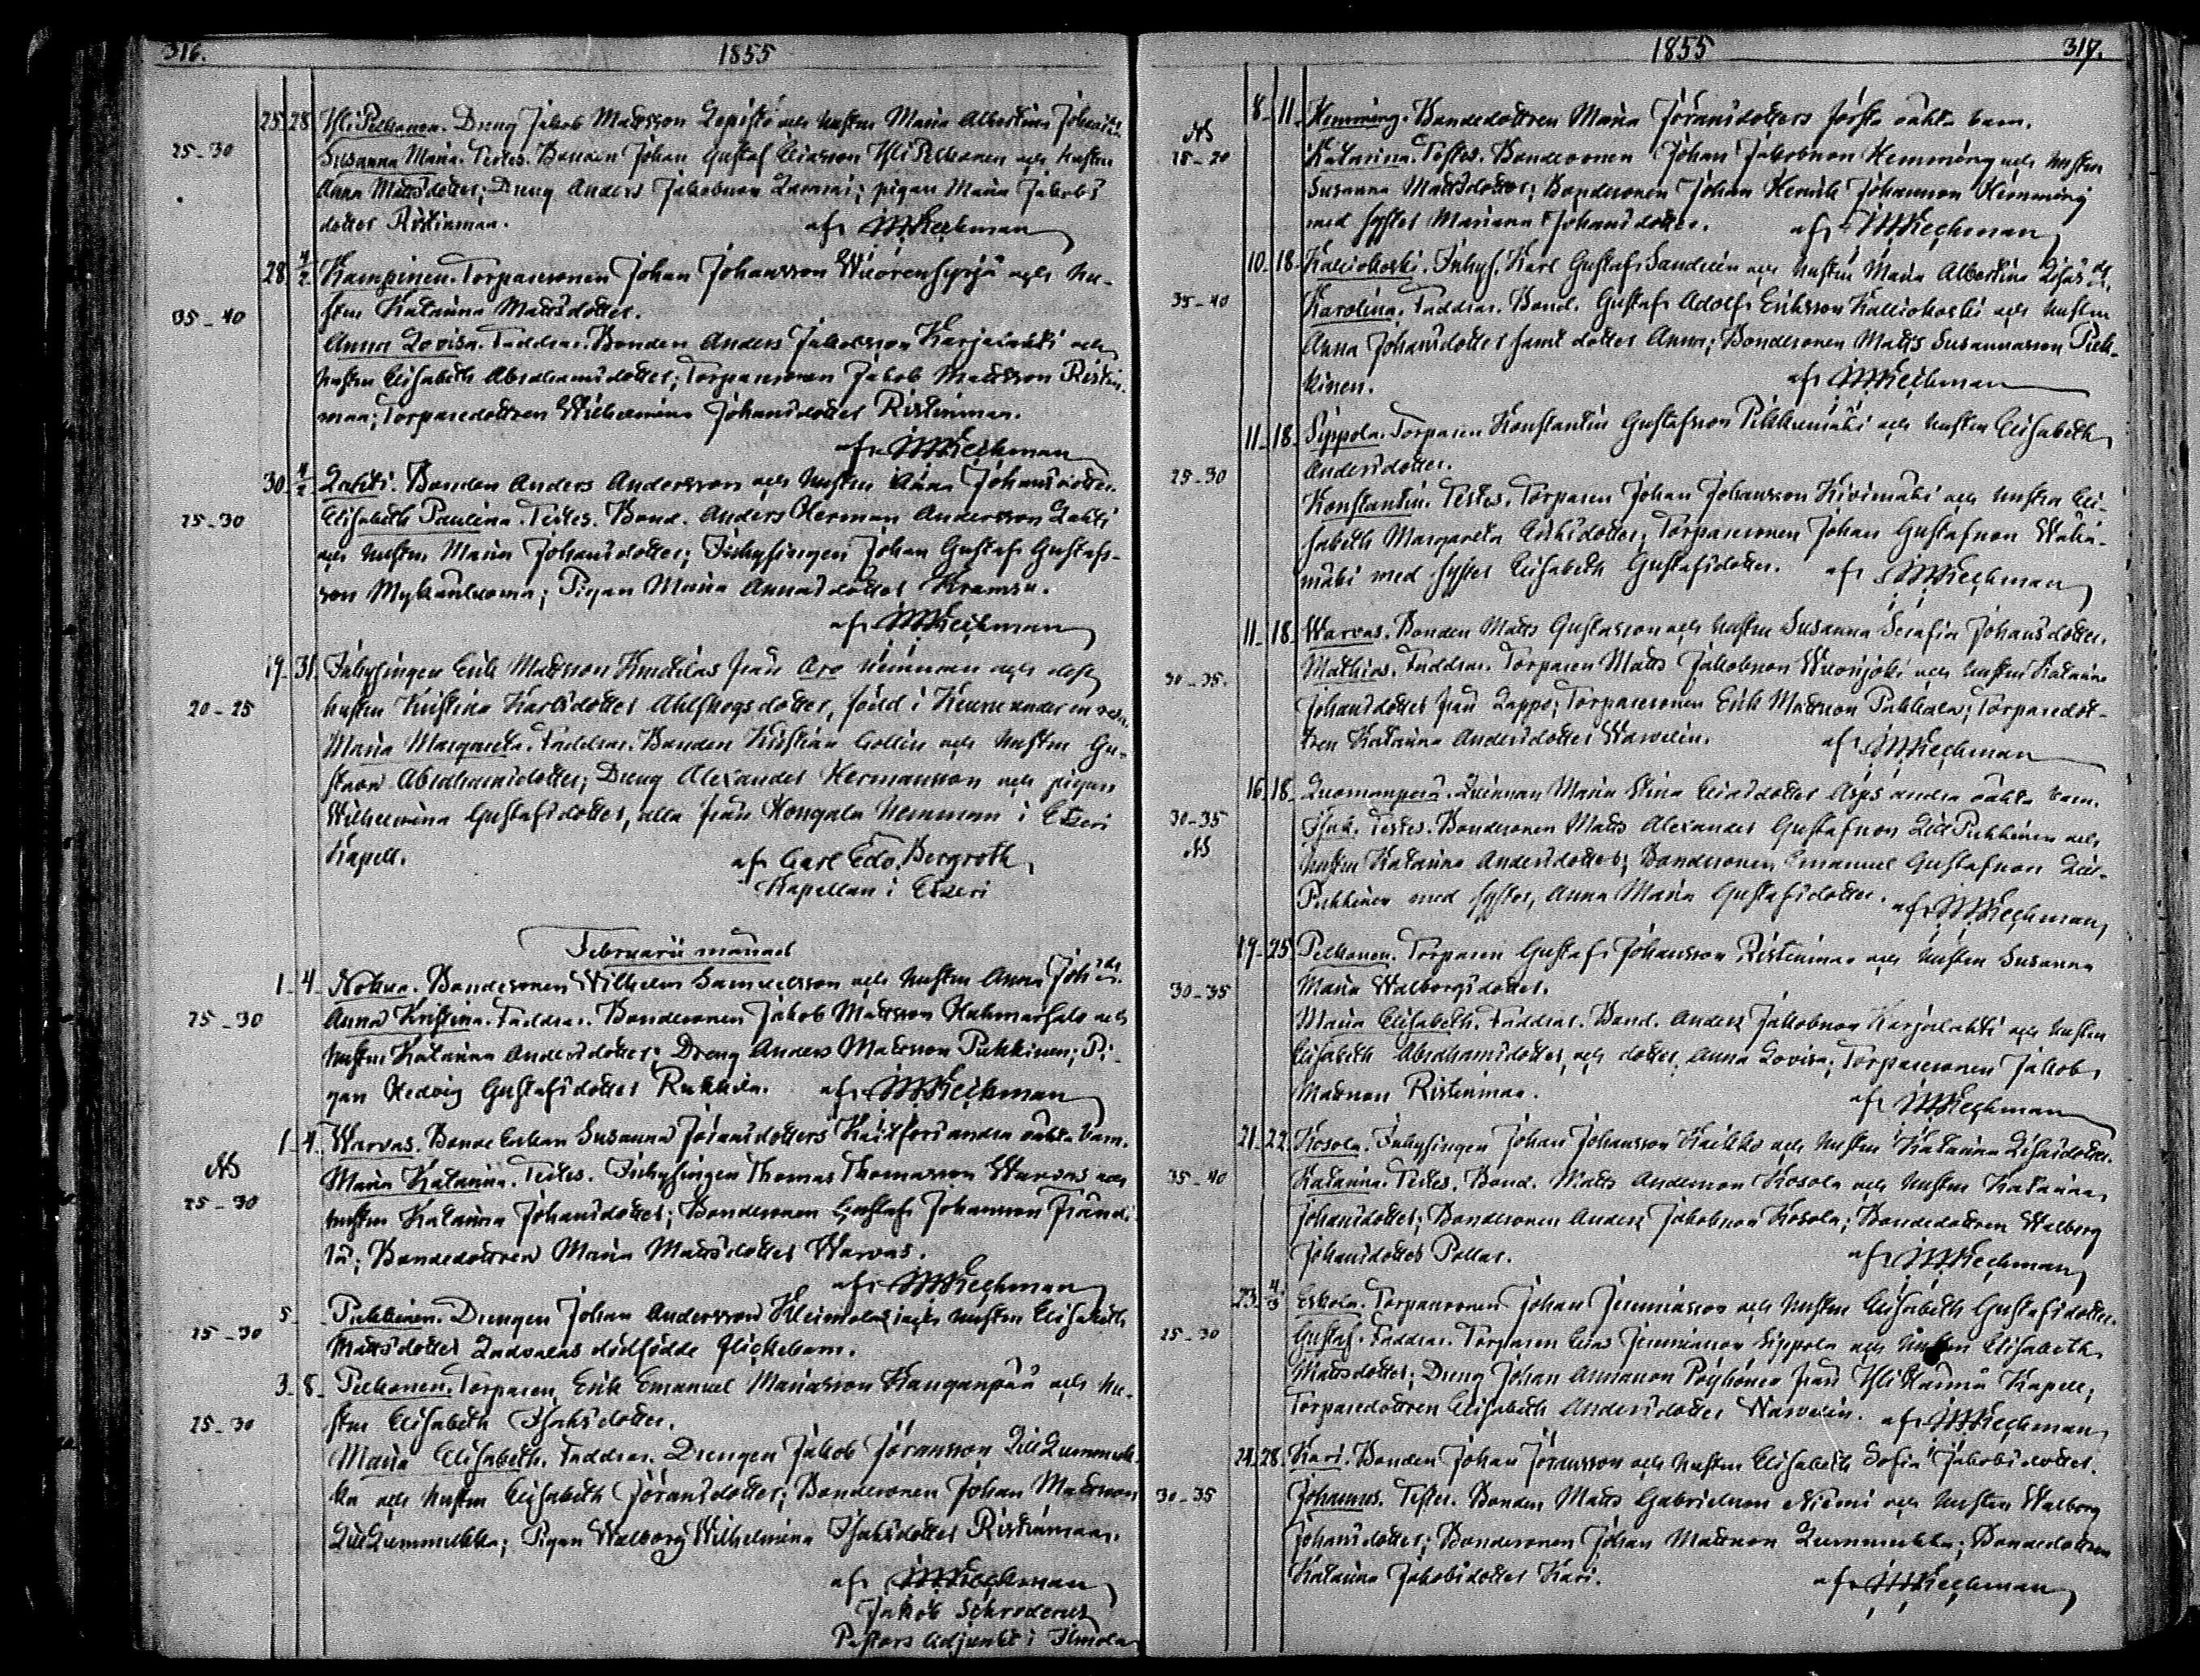 316. 1855
25 28 Yli Pelkonen. Dreng Jakob Mattsson Lepistö och hustru Maria Albertina Johansd:r
25-30 Susanna Maria. Testes. Bonden Johan Gustaf Eliasson Yli Pelkonen och hustru
Anna Mattsdotter; Dreng Anders Jakobsson Lammi; pigan Maria Jakobs
dotter Ristinmaa.
af M Reckman
28 4/2 Kampinen. Torparesonen Johan Johansson Wuorensyrjä och hu-
35-40 stru Katarina Mattsdotter.
Anna Lovisa. Faddrar. Bonden Anders Jakobsson Karjalahti och
hustru Elisabeth Abrahamsdotter; Torparesonen Jakob Mattsson Ristin-
maa; Torparedottren Wilhelmina Johansdotter Ristinmaa.
af M Reckman
30 4/2 Lahti. Bonden Anders Andersson och hustru Anna Johansdotter.
25-30 Elisabeth Paulina. Testes. Bond. Anders Herman Andersson Lahti
och hustru Maria Johansdotter; Inhysingen Johan Gustaf Gustafs-
son Mykänluoma; Pigan Maria Annasdotter Kramsu.
af M Reckman
19-31 Inhysingen Erik Mattsson Knuttilas från Aro hemman och dess
20-25 hustru Kristina Karlsdotter Ahlskogs dotter, född i Keuru under en resa.
Maria Margareta. Faddrar. Bonden Kristian Collin och hustru Gu-
stava Abrahamsdotter; Dreng Alexander Hermansson och pigan
Wilhelmina Gustafsdotter, alla från Kongala hemman i Etseri
Kapell.
af Carl Edv. Bergroth,
Kapellan i Etseri
Februarii månad
1-4 Nohva. Bondesonen Wilhelm Samuelsson och hustru Anna Johansd:r
25-30 Anna Kristina. Faddrar. Bondesonen Jakob Mattsson Hahmarsalo och
hustru Katarina Andersdotter; Dreng Anders Mattsson Puhkinen; Pi-
gan Hedvig Gustafsdotter Rukkila. af M Reckman
1-4 Warvas. Bonde Enkan Susanna Jöransdotters andra oäkta barn.
25-30 Maria Katarina. Testes. Inhysingen Thomas Thomasson Warvas och
hustru Katarina Johansdotter; Bondesonen Gustaf Johansson Fränti-
lä; Bondedottren Maria Mattsdotter Warvas.
af M Reckman
5- Puhkinen. Drengen Johan Andersson och hustru Elisabeth
25-30 Mattsdotter dödfödde flickebarn.
3-8 Pelkonen. Torparen Erik Emanuel Mariasson Kanganpää och hu-
25-30 stru Elisabeth Isaksdotter.
Maria Elisabeth. Faddrar. Drengen Jakob Jöransson Lill Lummuk-
ka och hustru Elisabeth Jöransdotter; Bondesonen Johan Mattsson
Lill Lummukka; Pigan Walborg Wilhelmina Isaksdotter Ristinmaa.
af M Reckman
Jakob Schroderus
Pastors Adjunkt i Ilmola
1855 317.
8-11 Hemming. Bondedottren Maria Jöransdotters första oäkta barn.
15-20 Katarina. Testes. Bondesonen Johan Jakobsson Hemming och hustru
Susanna Mattsdotter; Bondesonen Johan Henrik Johansson Hemming
med syster Mariana Johansdotter. af M Reckman
10-18 Kalliokoski. Inhys. Karl Gustaf Sandelin och hustru Maria Albertina
35-40 Karolina. Faddrar. Bond. Gustaf Adolf Eriksson Kalliokoski och hustru
Anna Johansdotter samt dotter Anna; Bondesonen Matts Susannasson Puh-
kinen. af M Reckman
11-18 Sippola. Torparen Konstantin Gustafsson Pikkumäki och hustru Elisabeth
25-30 Andersdotter.
Konstantin. Testes. Torparen Johan Johansson Kivimäki och hustru Eli-
sabeth Margareta Eriksdotter; Torparesonen Johan Gustafsson Waha-
mäki med syster Elisabeth Gustafsdotter. af M Reckman
11-18 Warvas. Bonden Matts Gustafsson och hustru Susanna Serafia Johansdotter.
30-35. Mathias. Faddrar. Torparen Matts Jakobsson Wuorijoki och hustru Katarina
Johansdotter från Lappo; Torparesonen Erik Mattsson Puhkala; Torparedot-
tren Katarina Andersdotter Warvelin. af M Reckman
16-18 Luomanperä. Qvinnan Maria Stina Eliasdotter Asps andra oäkta barn.
30-35 Isak. Testes. Bondesonen Matts Alexander Gustafsson Lill Puhkinen och
hustru Katarina Andersdotter; Bondesonen Emanuel Gustafsson Lill-
Puhkinen med syster, Anna Maria Gustafsdotter. af M Reckman
19-25 Pelkonen. Torparen Gustaf Johansson Ristinmaa och hustru Susanna
30-35 Maria Walborgsdotter.
Maria Elisabeth. Faddrar. Bond. Anders Jakobsson Karjalahti och hustru
Elisabeth Abrahamsdotter och dotter Anna Lovisa; Torparesonen Jakob
Mattsson Ristinmaa. af M Reckman
21-22 Kosola. Inhysingen Johan Johansson Kaikko och hustru Katarina Lisasdotter.
35-40 Katarina. Testes. Bond. Matts Andersson Kosola och hustru Katarina
Johansdotter; Bondesonen Anders Jakobsson Kosola; Bondedottren Walborg
Johansdotter Pollar. af M Reckman
23 4/3 Eskola. Torparesonen Johan Jeremiasson och hustru Elisabeth Gustafsdotter.
25-30 Gustaf. Faddrar. Torparen Elias Jeremiasson Sippola och hustru Elisabeth
Mattsdotter; Dreng Johan Annasson Pöyhönen från Ylistaro Kapell;
Torparedottren Elisabeth Andersdotter Warvelin. af M Reckman
24-28 Kari. Bonden Johan Jöransson och hustru Elisabeth Sofia Jakobsdotter.
30-35 Johannes. Testes. Bonden Matts Gabrielsson Niemi och hustru Walborg
Johansdotter; Bondesonen Johan Mattsson Lummukka; Bondedottren
Katarina Jakobsdotter Kari. af M Reckman